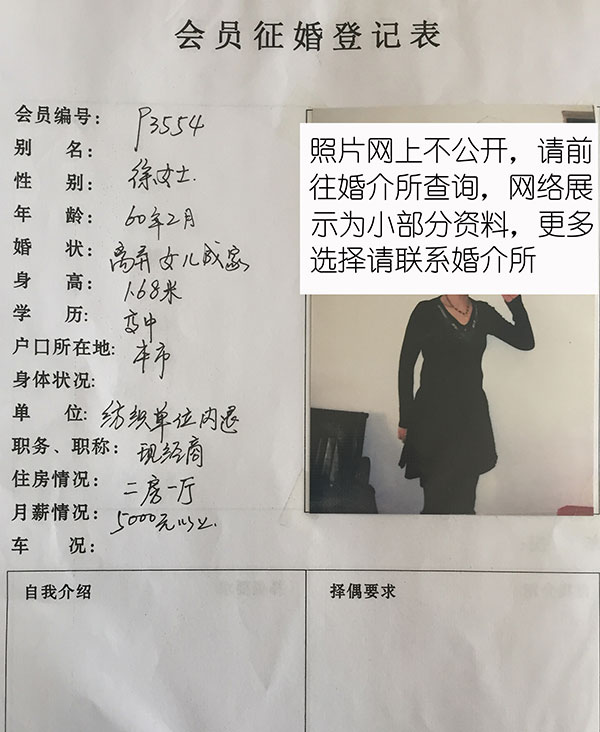 会员征婚登记表
会员编号: P3554
别 名: 徐女士.
性 别:
年 龄: 60年2月
婚 状: 离异女儿成家
身 高: 1.68米
学 历: 高中
户口所在地: 本市
身体状况:
单 位: 纺织单位内退
职务、职称: 现经商
住房情况: 二房一厅
月薪情况: 5000元以上.
车 况:
照片网上不公开，请前
往婚介所查询，网络展
示为小部分资料，更多
选择请联系婚介所
自我介绍
择偶要求